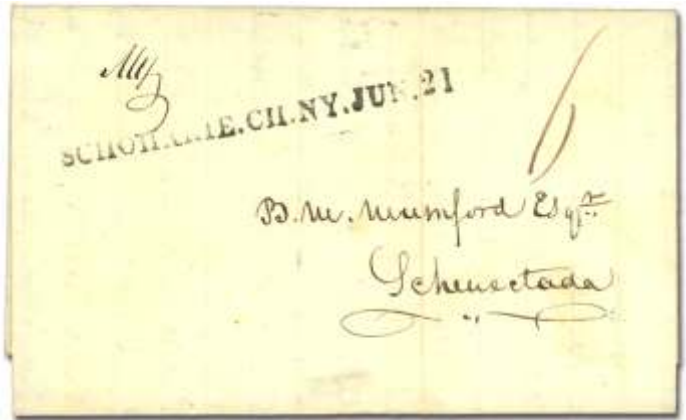 SCHOHARIE.CH.NY.JUN.21
6
B. M. Mumford Esqr.
Schenectada